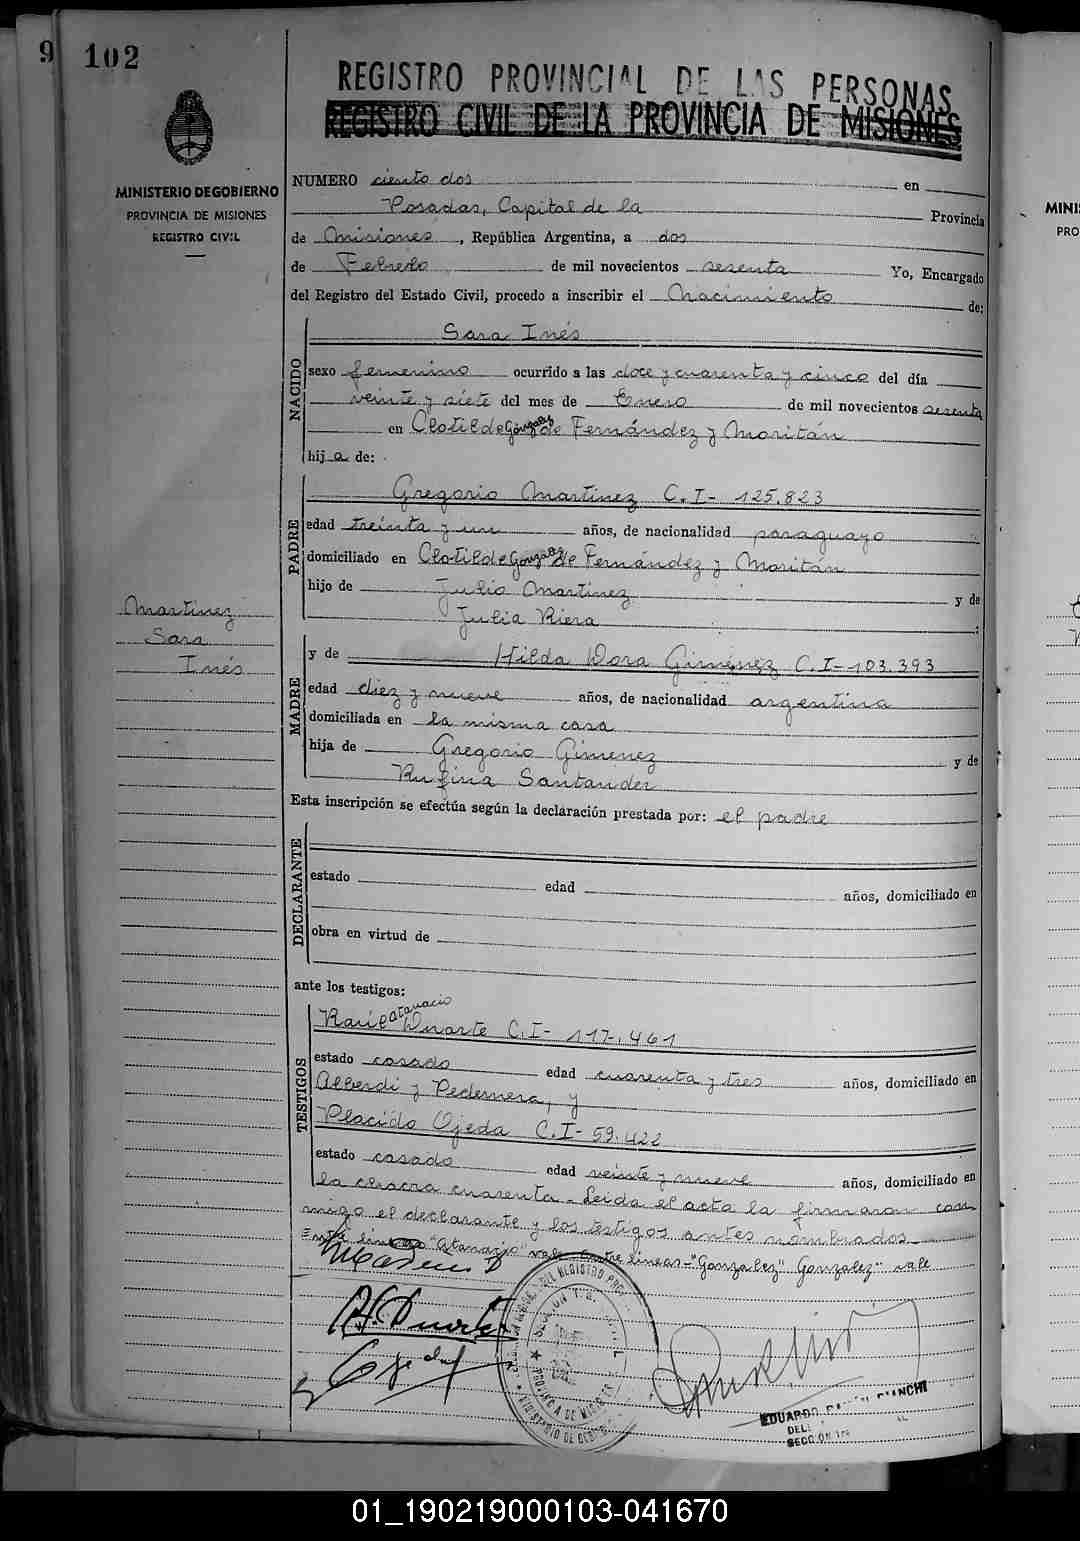 9 102
REGISTRO PROVINCIAL DE LAS PERSONAS
REGISTRO CIVIL DE LA PROVINCIA DE MISIONES
MINISTERIO DE GOBIERNO
PROVINCIA DE MISIONES
REGISTRO CIVIL
MINI
PRO
NUMERO ciento dos en
Posadas, Capital de la Provincia
de Misiones, República Argentina, a dos
de Febrero de mil novecientos sesenta Yo, Encargado
del Registro del Estado Civil, procedo a inscribir el Nacimiento de:
NACIDO
Sara Inés
sexo femenino ocurrido a las doce y cuarenta y cinco del día
veinte y siete del mes de Enero de mil novecientos sesenta
en Clotilde Gonzalez de Fernández y Moritán
hija de:
PADRE
Gregorio Martinez C.I- 125.823
edad treinta y un años, de nacionalidad paraguayo
domiciliado en Clotilde Gonzalez de Fernández y Moritán
hijo de Julio Martinez y de
Julia Riera ;
Martinez
Sara
Inés
MADRE
y de Hilda Dora Giménez C.I-103.393
edad diez y nueve años, de nacionalidad argentina
domiciliada en la misma casa
hija de Gregorio Gimenez y de
Rufina Santander
Esta inscripción se efectúa según la declaración prestada por: el padre
DECLARANTE
estado edad años, domiciliado en
obra en virtud de
ante los testigos:
TESTIGOS
Raúl Atanacio Duarte C.I- 117.461
estado casado edad cuarenta y tres años, domiciliado en
Alberdi y Pedernera, y
Placido Ojeda C.I- 59.422
estado casado edad veinte y nueve años, domiciliado en
la chacra cuarenta.- Leida el acta la firmaron con
migo el declarante y los testigos antes nombrados
Entre lineas "Atanacio" vale. Entre lineas-"Gonzalez" Gonzalez" vale
PROVINCIA DE MISIONES
EDUARDO BIANCHI
01_190219000103-041670